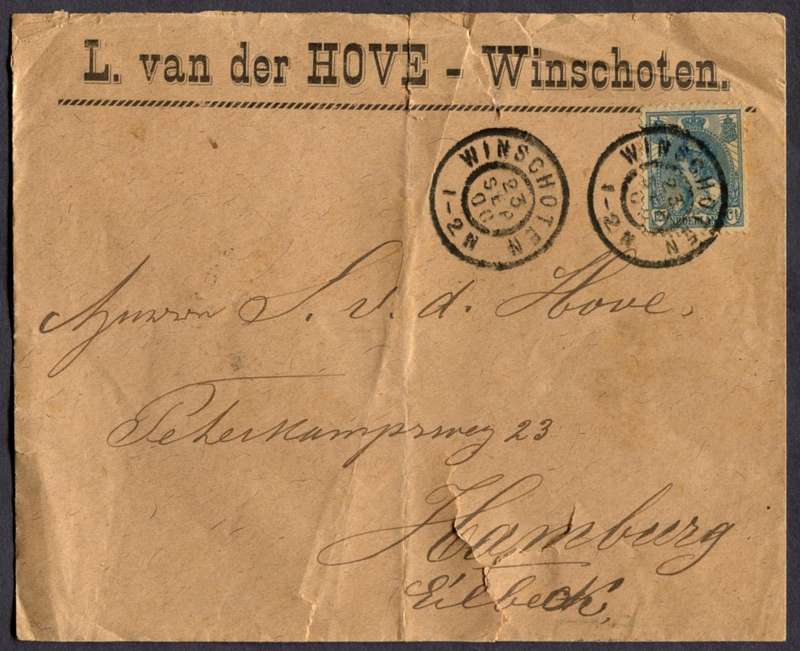 L. van der HOVE - Winschoten.
WINSCHOTEN
23
SEP
00
1-2N
WINSCHOTEN
23
SEP
00
1-2N
S. v. d. Hove.
Peterkampsweg 23
Hamburg
Eilbeck.